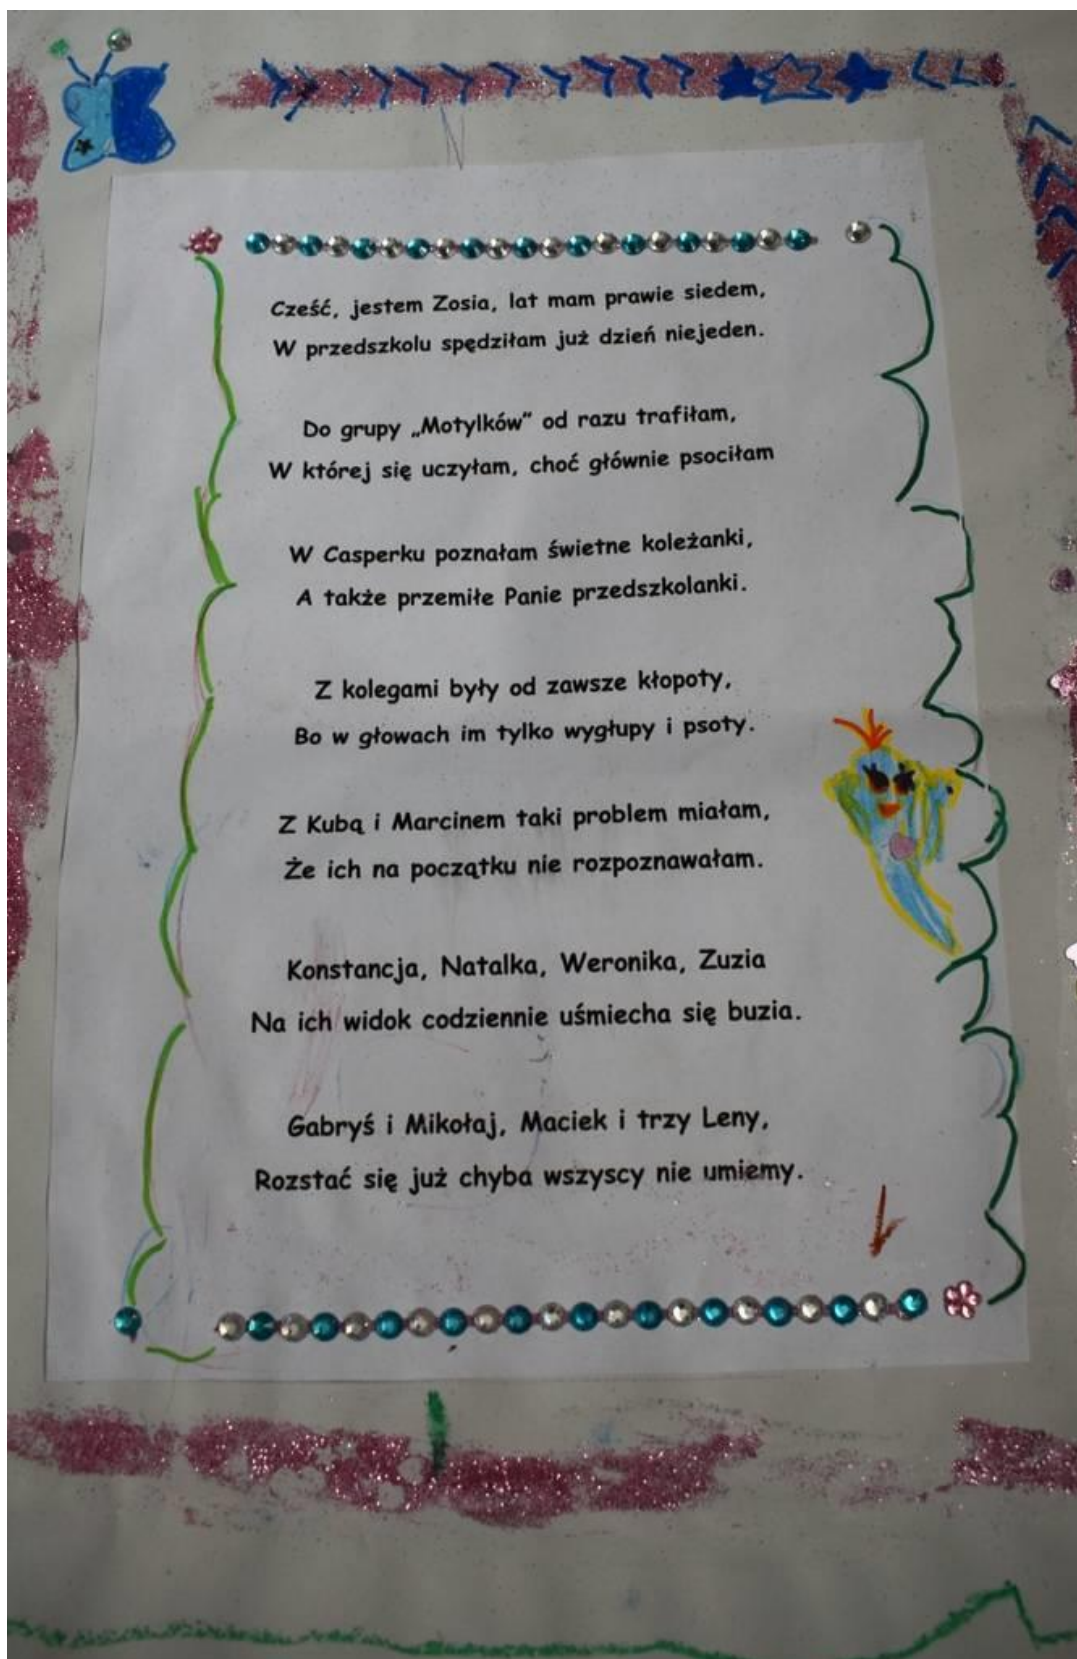 Cześć, jestem Zosia, lat mam prawie siedem,
W przedszkolu spędziłam już dzień niejeden.
Do grupy „Motylków” od razu trafiłam,
W której się uczyłam, choć głównie psociłam
W Casperku poznałam świetne koleżanki,
A także przemiłe Panie przedszkolanki.
Z kolegami były od zawsze kłopoty,
Bo w głowach im tylko wygłupy i psoty.
Z Kubą i Marcinem taki problem miałam,
Że ich na początku nie rozpoznawałam.
Konstancja, Natalka, Weronika, Zuzia
Na ich widok codziennie uśmiecha się buzia.
Gabryś i Mikołaj, Maciek i trzy Leny,
Rozstać się już chyba wszyscy nie umiemy.